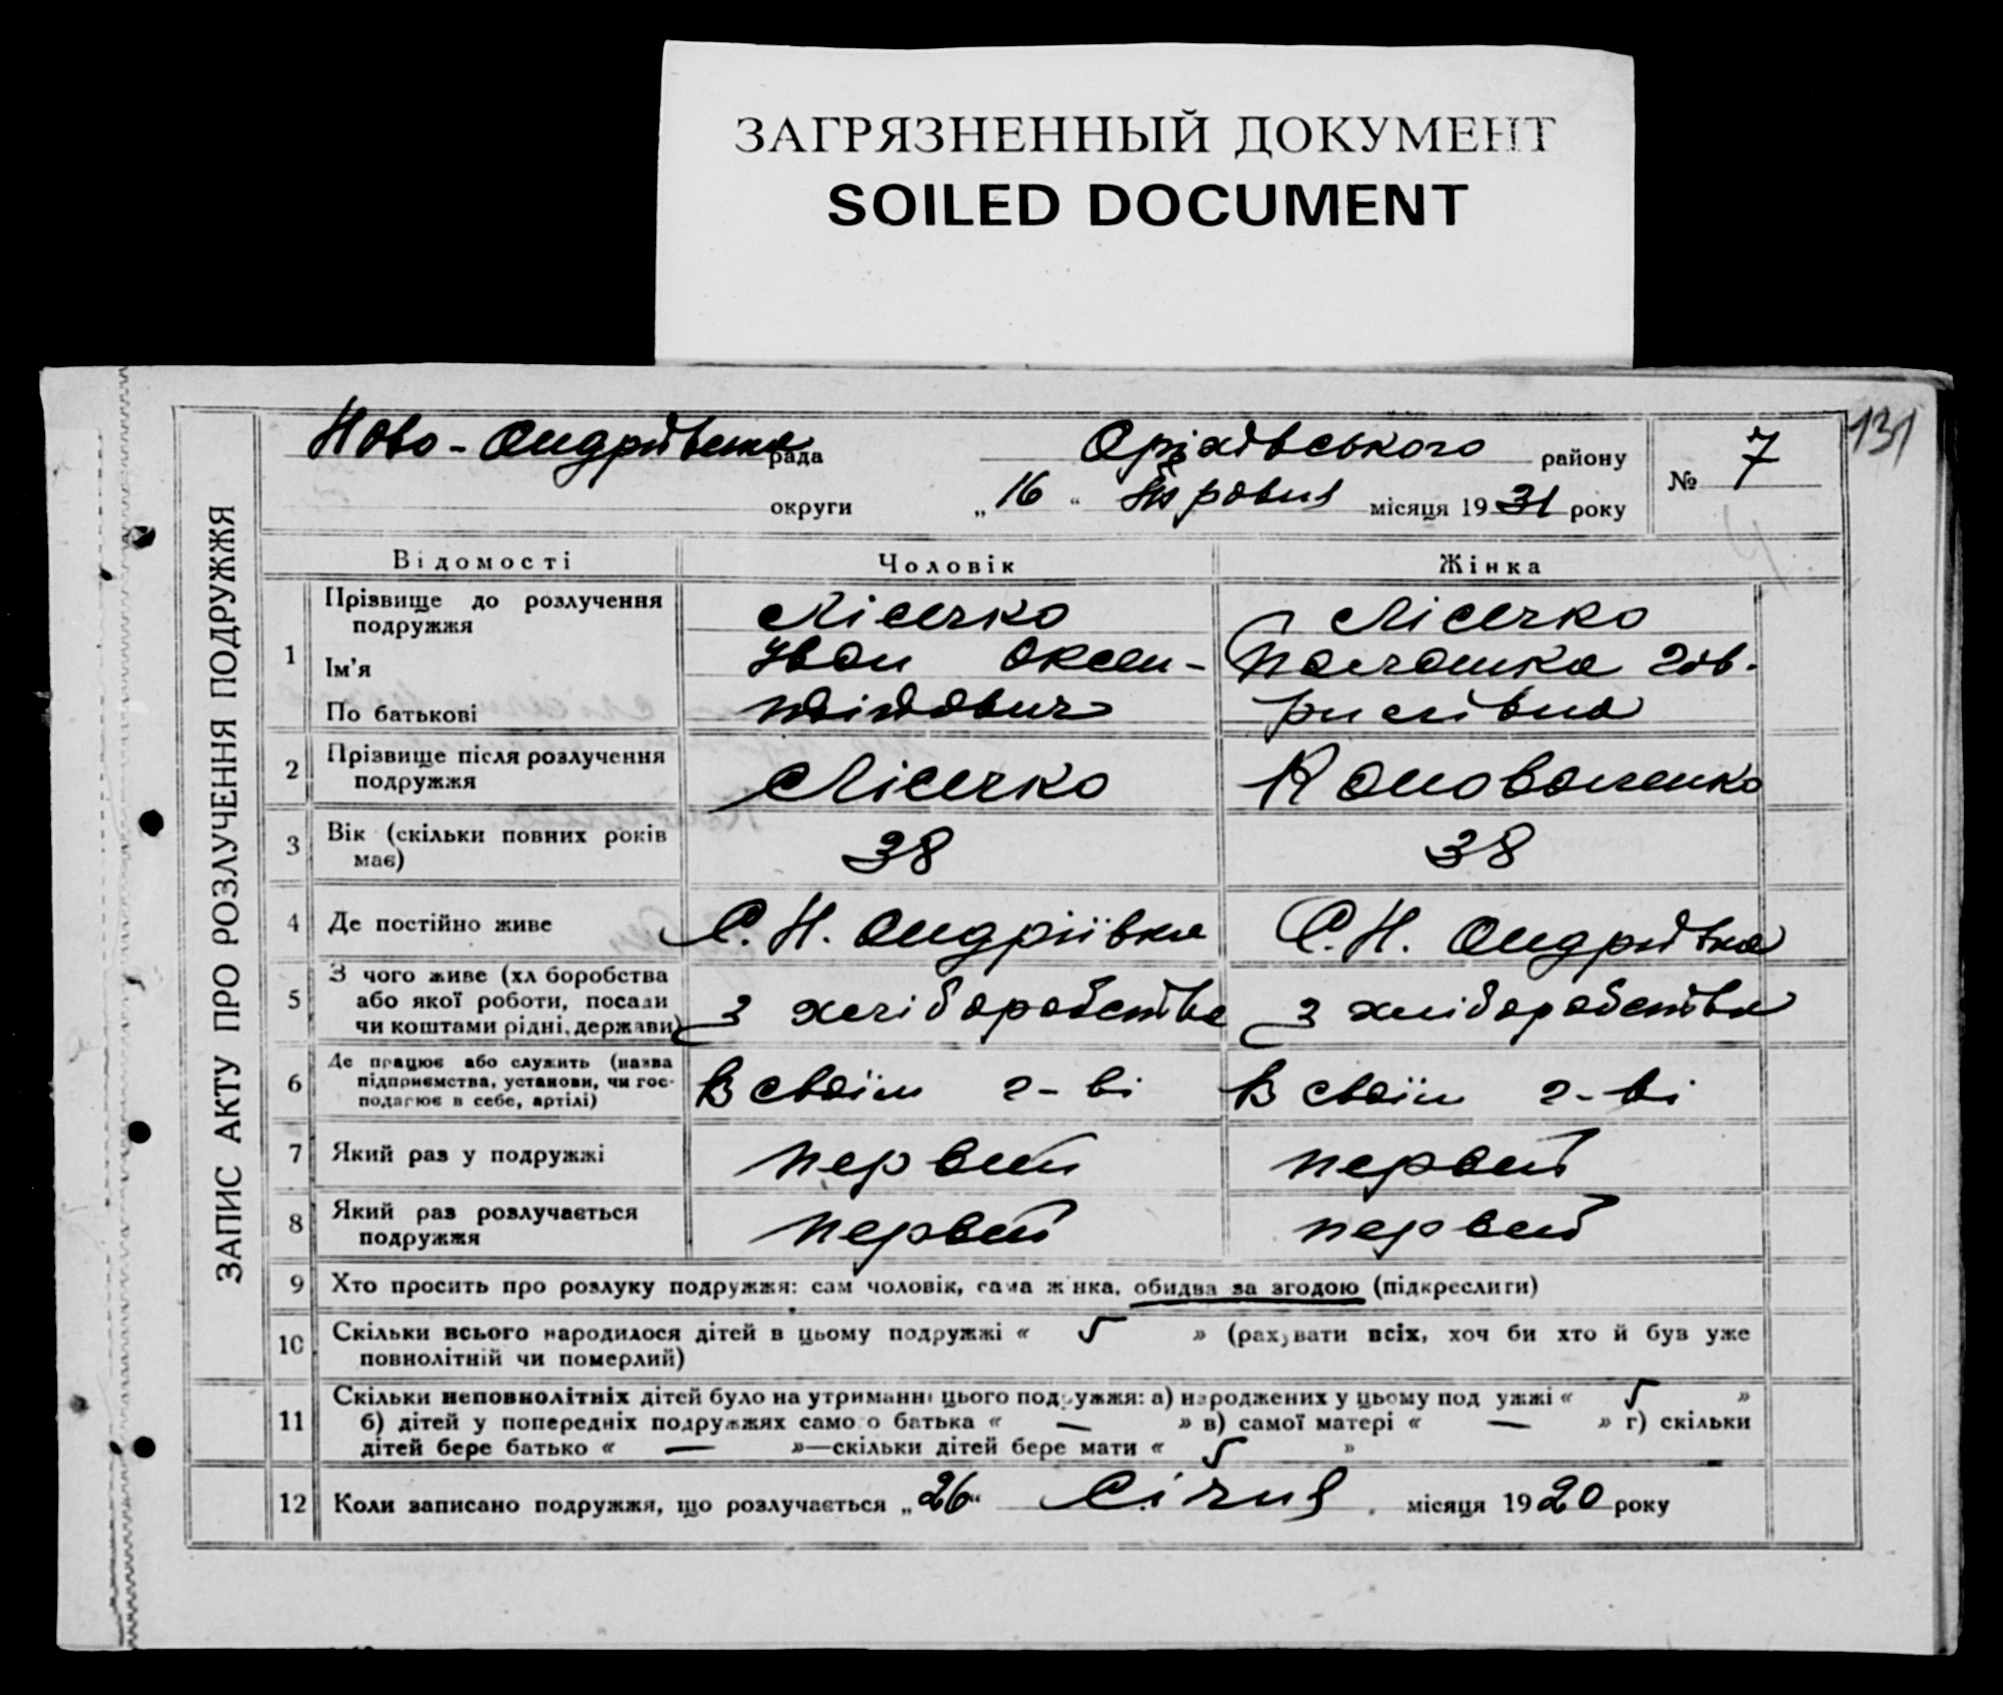 ЗАГРЯЗНЕННЫЙ ДОКУМЕНТ
SOILED DOCUMENT
131
ЗАПИС АКТУ ПРО РОЗЛУЧЕННЯ ПОДРУЖЖЯ
Ново-Андріївська рада Оріхівського району № 7
округи „16“ місяця 1931 року
Відомості Чоловік Жінка
1 Прізвище до розлучення Лісечко Лісечко
подружжя
Ім'я Іван Оксен-
По батькові
2 Прізвище після розлучення Лісечко Коноваленко
подружжя
3 Вік (скільки повних років 38 38
має)
4 Де постійно живе С. Н. Андріївка С. Н. Андріївка
5 З чого живе (хл боробства з хліборобства з хліборобства
або якої роботи, посади
чи коштами рідні, держави)
6 Де працює або служить (назва В своїм г-ві В своїм г-ві
підприємства, установи, чи гос-
подарює в себе, артілі)
7 Який раз у подружжі первий первий
8 Який раз розлучається первий первий
подружжя
9 Хто просить про розлуку подружжя: сам чоловік, сама ж нка, обидва за згодою (підкреслити)
10 Скільки всього народилося дітей в цьому подружжі « 5 » (рахувати всіх, хоч би хто й був уже
повнолітній чи померлий)
11 Скільки неповнолітніх дітей було на утриманні цього подружжя: а) народжених у цьому под ужжі « 5 »
б) дітей у попередніх подружжях само о батька « — » в) самої матері « — » г) скільки
дітей бере батько « — »—скільки дітей бере мати « 5 »
12 Коли записано подружжя, що розлучається „26“ Січня місяця 1920 року